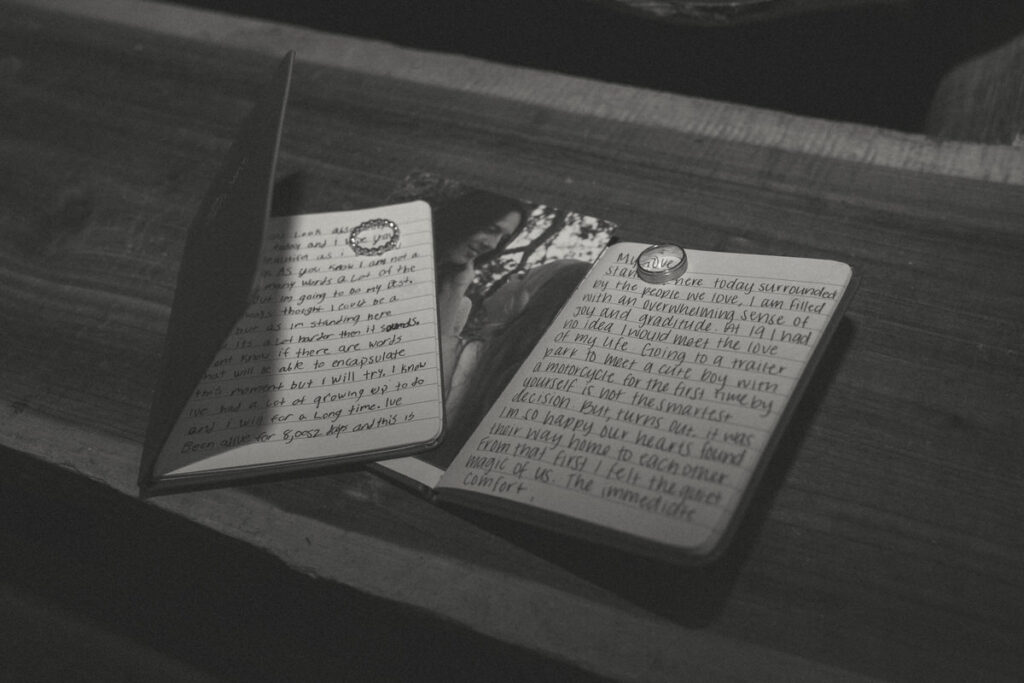 Look
today and I love you
as I
As you know I am not a
many words a Lot of the
But im going to do my best.
thought I could be a
but as im standing here
its a Lot harder then it sounds.
know if there are words
that will be able to encapsulate
this moment but I will try. I know
Ive had a Lot of growing up to do
and I will for a Long time. Ive
Been alive for 8,0052 days and this is
My love
here today surrounded
by the people we love, I am filled
with an overwhelming sense of
joy and graditude. At 19 I had
no idea I would meet the love
of my life. Going to a trailer
park to meet a cute boy with
a motorcycle for the first time by
yourself is not the smartest
decision. But turns out, it was
I'm so happy our hearts found
their way home to each other
From that first I felt the quiet
magic of us. The immediate
comfort.